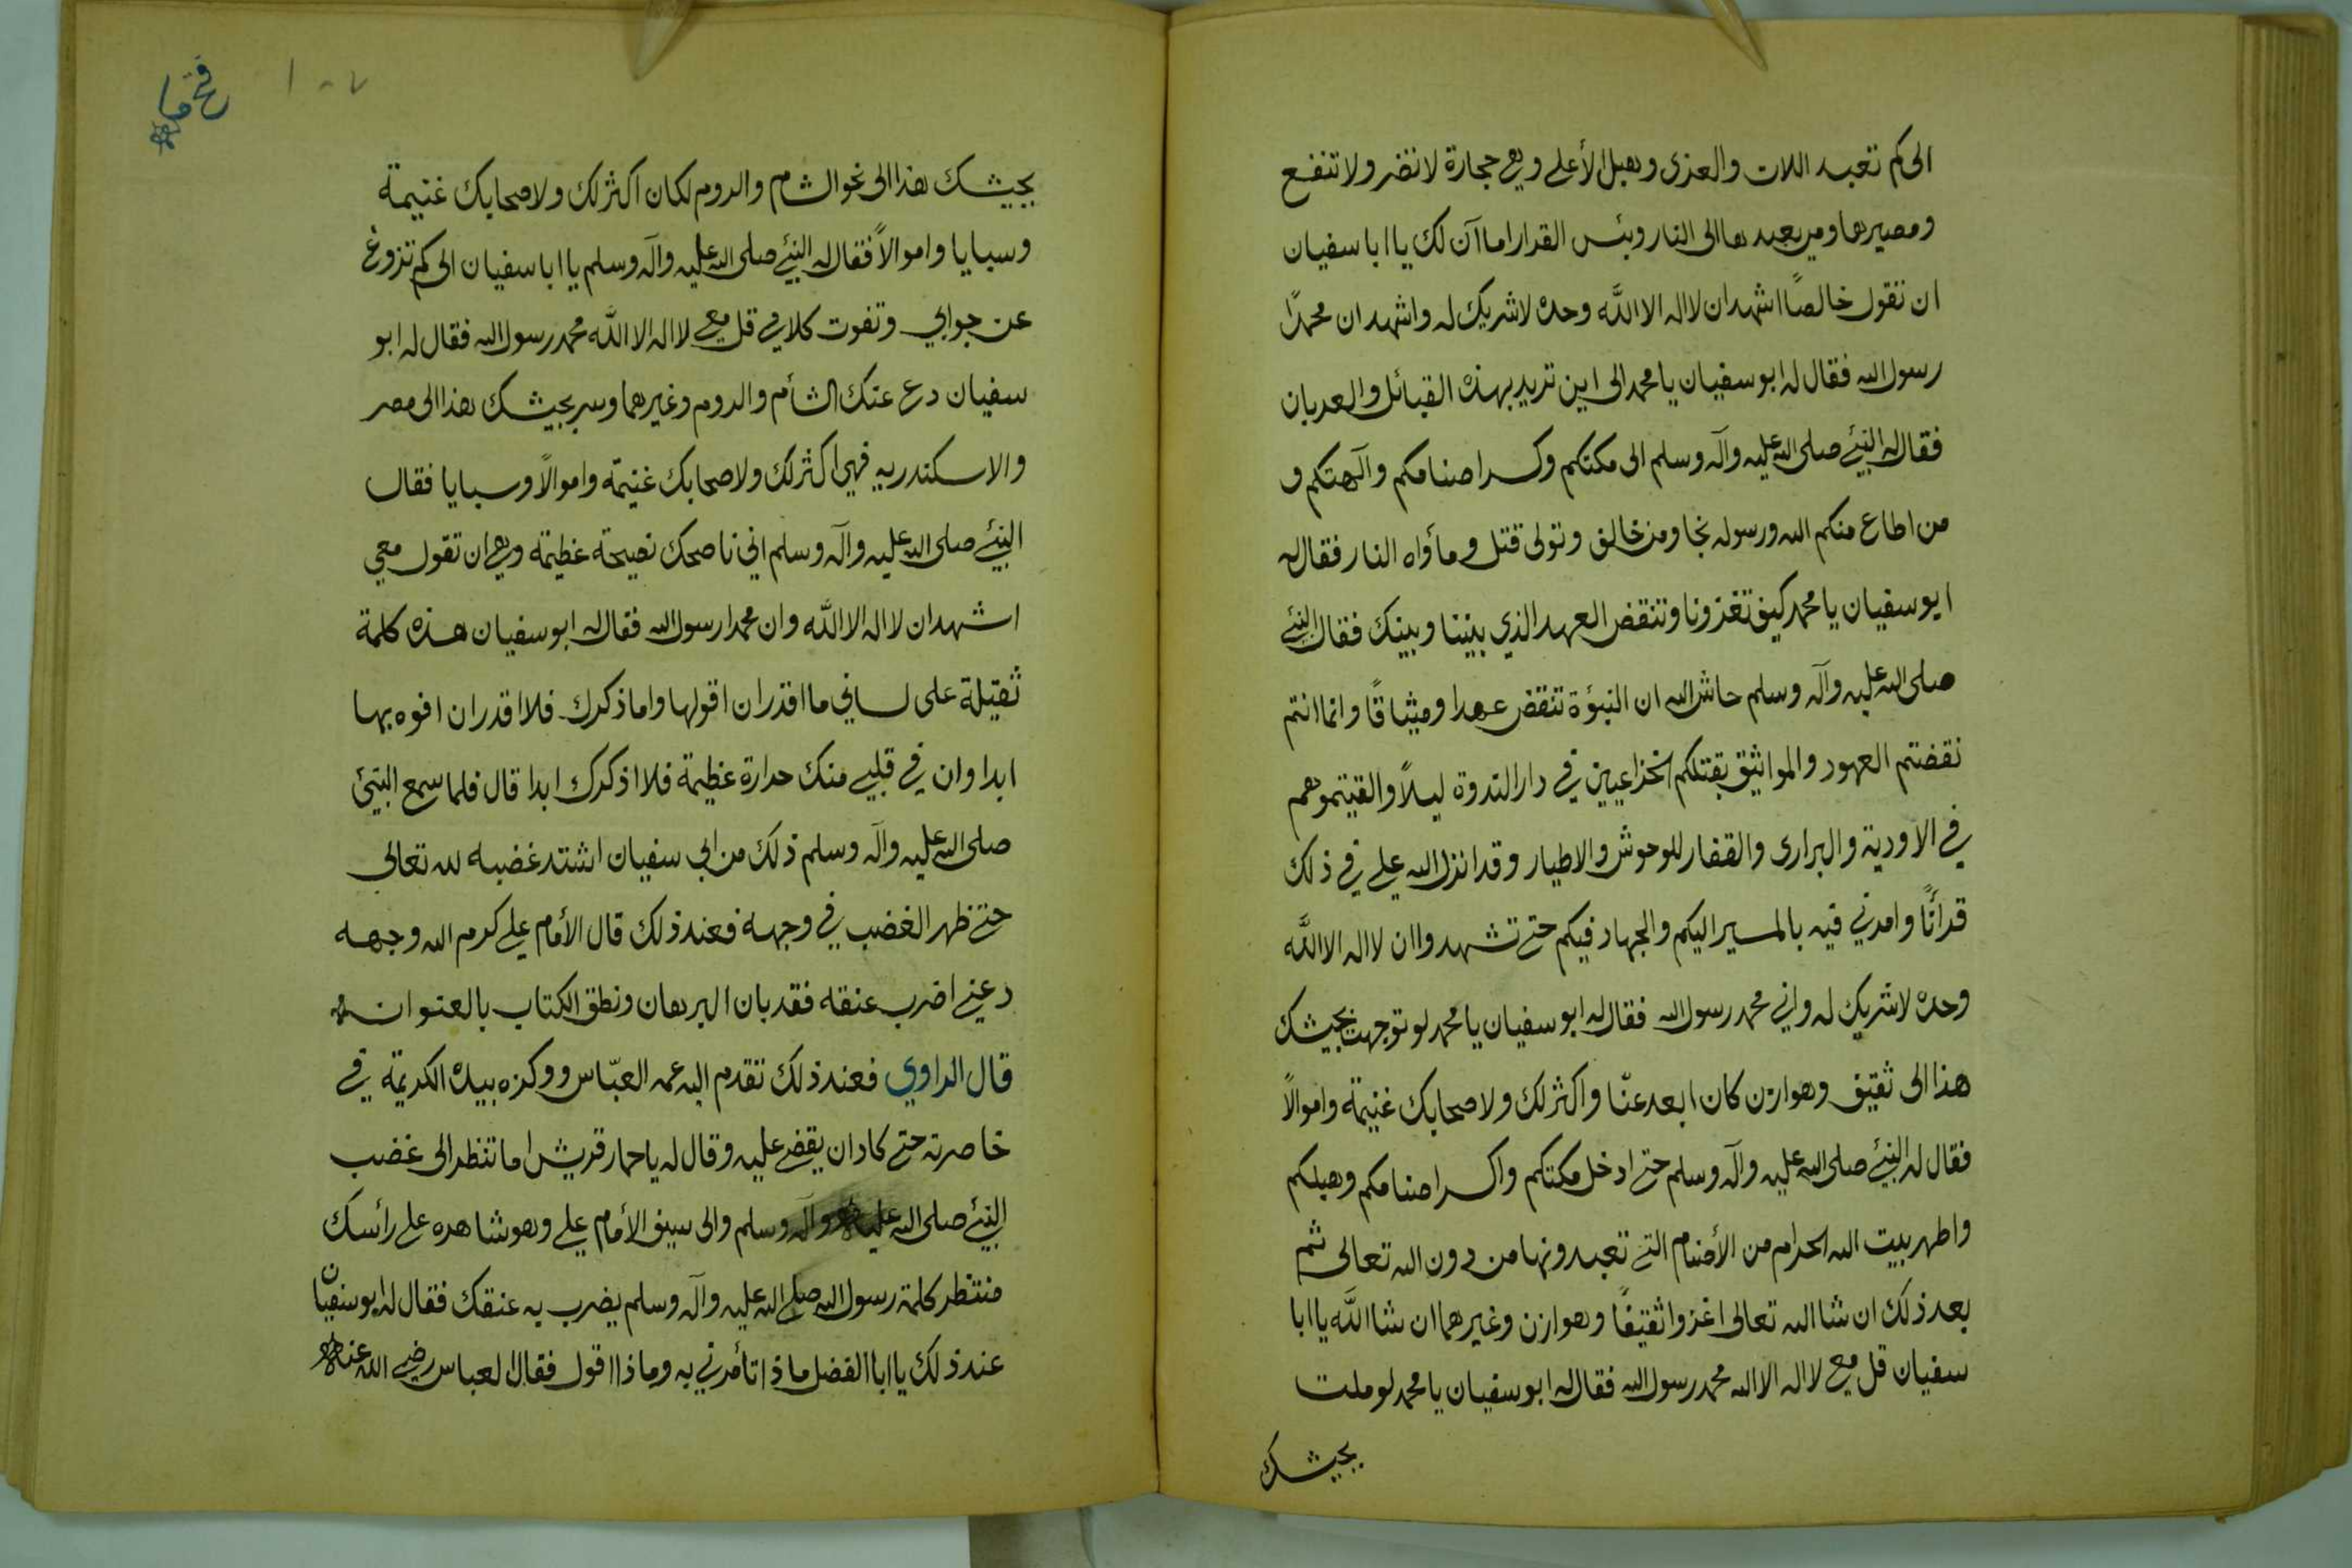 الى كم تعبد اللات والعزى وهبل الأعلى وهي حجارة لا تضر ولا تنفع
ومصيرها ومن يعبدها الى النار وبئس القرار اما آن لك يا ابا سفيان
ان تقول خالصًا اشهد ان لا اله الا الله وحده لا شريك له واشهد ان محمدًا
رسول الله فقال له ابو سفيان يا محمد الى اين تريد بهذه القبائل والعربان
فقال له النبي صلى الله عليه وآله وسلم الى مكتكم وكسر اصنامكم وآلهتكم و
من اطاع منكم الله ورسوله نجا ومن خالف وتولى قتل ومأواه النار فقال له
ابو سفيان يا محمد كيف تغزونا وتنقض العهد الذي بيننا وبينك فقال النبي
صلى الله عليه وآله وسلم حاش لله ان النبؤة تنقض عهدا وميثاقًا وانما انتم
نقضتم العهود والمواثيق بقتلكم الخزاعيين في دار الندوة ليلاً والقيتموهم
في الاودية والبرارى والقفار للوحوش والاطيار وقد انزل الله علي في ذلك
قرأنًا وامرني فيه بالمسير اليكم والجهاد فيكم حتى تشهدوا ان لا اله الا الله
وحده لا شريك له واني محمد رسول الله فقال له ابو سفيان يا محمد لو توجهت بجيشك
هذا الى ثقيف وهوازن كان ابعد عنّا واكثر لك ولاصحابك غنيمة واموالاً
فقال له النبي صلى الله عليه وآله وسلم حتى ادخل مكتكم واكسر اصنامكم وهبلكم
واطهر بيت الله الحرام من الأصنام التي تعبدونها من دون الله تعالى ثم
بعد ذلك ان شا الله تعالى اغزوا ثقيفًا وهوازن وغيرهما ان شا الله يا ابا
سفيان قل معي لا اله الا الله محمد رسول الله فقال له ابو سفيان يا محمد لو ملت
بجيشك
١٠٧
بجيشك هذا الى نحو الشام والروم لكان اكثر لك ولاصحابك غنيمة
وسبايا واموالاً فقال له النبي صلى الله عليه وآله وسلم يا ابا سفيان الى كم تزوغ
عن جوابي وتفوت كلامي قل معي لا اله الا الله محمد رسول الله فقال له ابو
سفيان دع عنك الشأم والروم وغيرهما وسر بجيشك هذا الى مصر
والاسكندريه فهي اكثر لك ولاصحابك غنيمة واموالاً وسبايا فقال
النبي صلى الله عليه وآله وسلم اني ناصحك نصيحة عظيمة وهي ان تقول معي
اشهد ان لا اله الا الله وان محمدا رسول الله فقال له ابو سفيان هذه كلمة
ثقيلة على لساني ما اقدر ان اقولها واما ذكرك فلا اقدر ان افوه بها
ابدا وان في قلبي منك حرارة عظيمة فلا اذكرك ابدا قال فلما سمع النبي
صلى الله عليه وآله وسلم ذلك من ابي سفيان اشتد غضبه لله تعالى
حتى ظهر الغضب في وجهه فعند ذلك قال الأمام علي كرم الله وجهه
دعني اضرب عنقه فقد بان البرهان ونطق الكتاب بالعنوان
قال الراوي فعند ذلك تقدم اليه عمه العبّاس ووكزه بيده الكريمة في
خاصرته حتى كاد ان يقضي عليه وقال له يا حمار قريش اما تنظر الى غضب
النبي صلى الله عليه وآله وسلم والى سيف الأمام علي وهو شاهره على رأسك
منتظر كلمة رسول الله صلى الله عليه وآله وسلم يضرب به عنقك فقال له ابو سفيان
عند ذلك يا ابا الفضل ماذا تأمرني به وماذا اقول فقال العباس رضي الله عنه